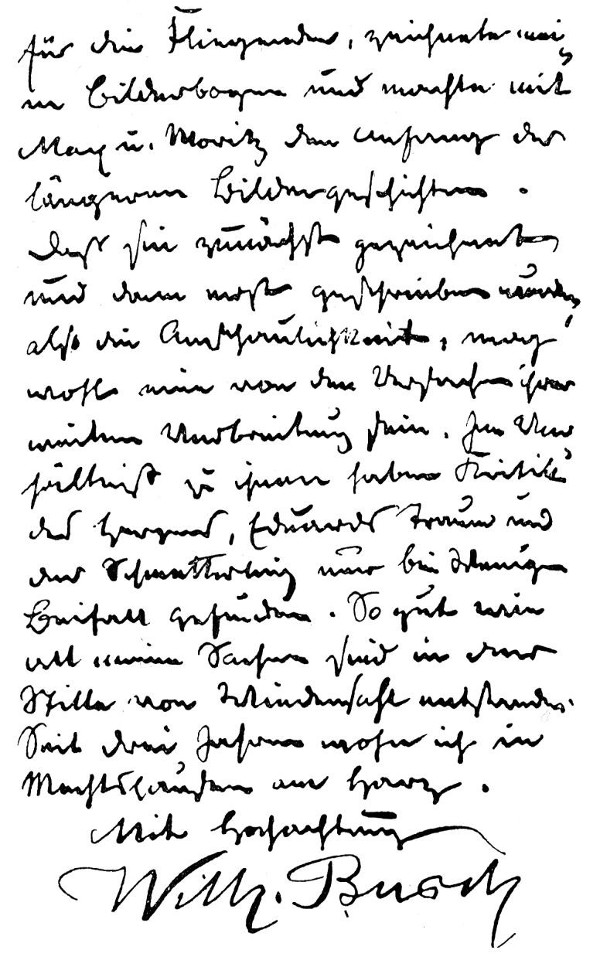 für die Fliegenden, zeichnete mei-
ne Bilderbogen und machte mit
Max u. Moritz den Anfang der
längeren Bildergeschichten.
Daß sie zunächst gezeichnet
und dann erst geschrieben wurden,
also die Anschaulichkeit, mag
wohl eine von den Ursachen ihrer
weiten Verbreitung sein. Im Ver-
hältniß zu ihnen haben Kritik
des Herzens, Eduards Traum und
der Schmetterling nur bei Wenigen
Beifall gefunden. So gut wie
all meine Sachen sind in der
Stille von Wiedensahl entstanden.
Seit drei Jahren wohn ich in
Mechtshausen am Harz.
Mit Hochachtung
Wilh. Busch